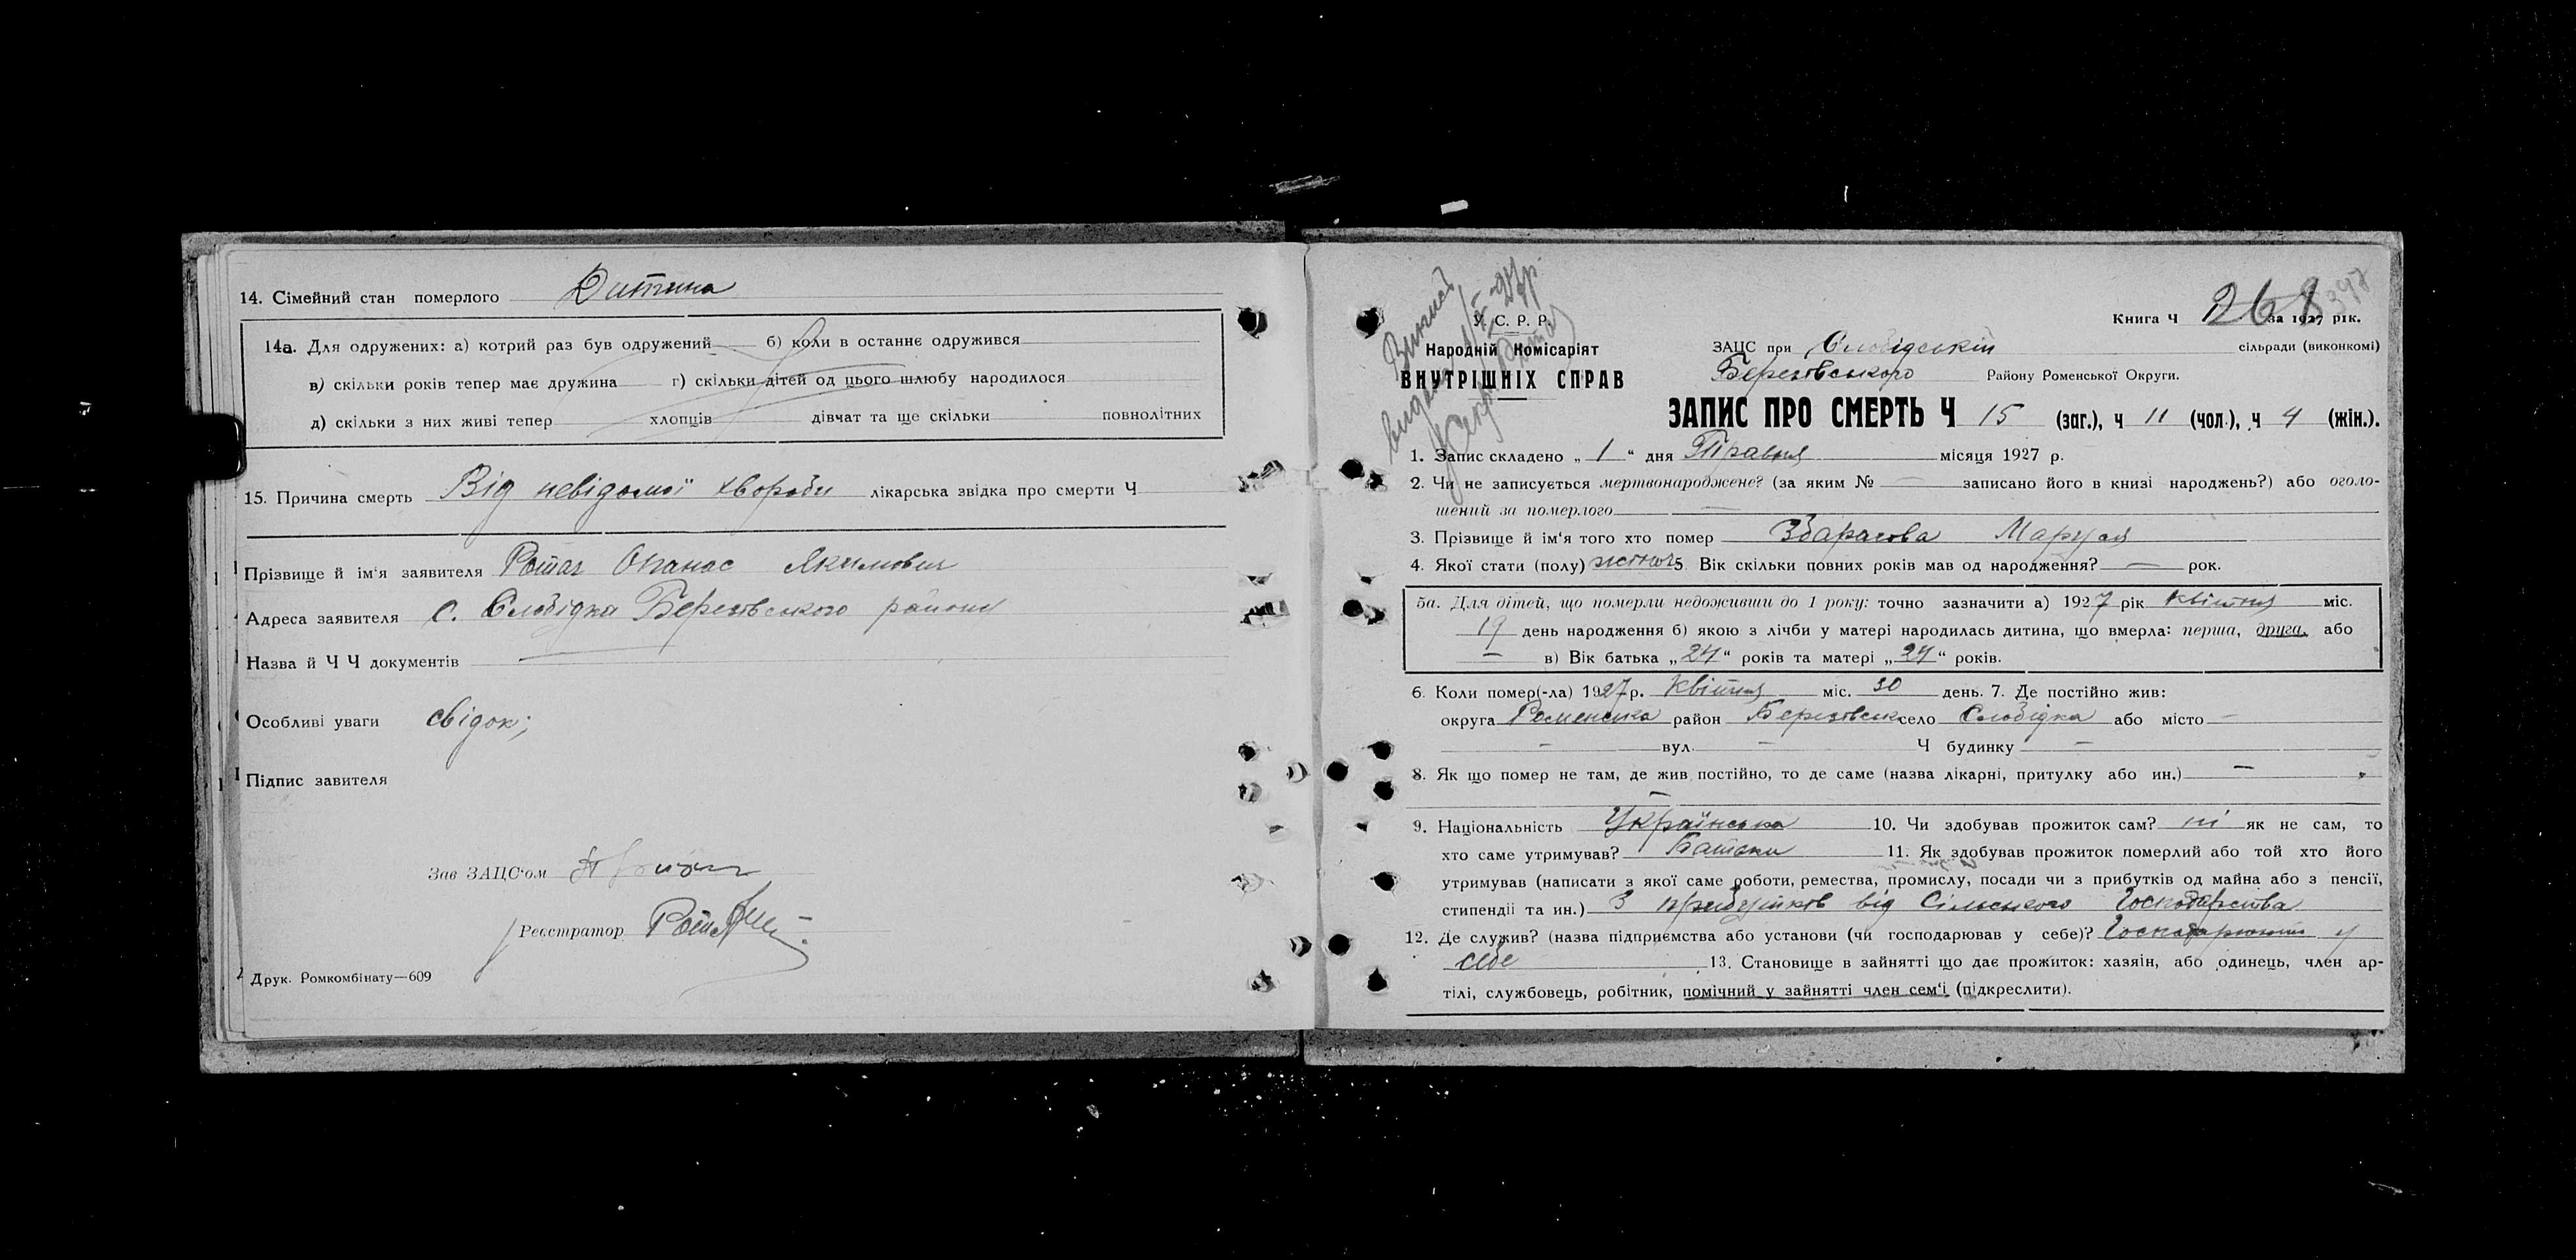 14. Сімейний стан померлого Дитина
14а. Для одружених: а) котрий раз був одружений б) коли в останнє одружився
в) скільки років тепер має дружина г) скільки дітей од цього шлюбу народилося
д) скільки з них живі тепер хлопців дівчат та ще скільки повнолітних
15. Причина смерть Від невідомої хвороби лікарська звідка про смерти Ч
Прізвище й ім'я заявителя Ротач Опанас Якимович
Адреса заявителя с. Слобідка Березовського району
Назва й Ч Ч документів —
Особливі уваги свідок;
Підпис завителя
Зав ЗАЦС'ом
Реєстратор
Друк. Ромкомбінату—609
У. С. Р. Р.
Народній Комісаріят
ВНУТРІШНІХ СПРАВ
268
347
Книга Ч за 1927 рік.
ЗАЦС при Слобідській сільради (виконкомі)
Березовського Району Роменської Округи.
ЗАПИС ПРО СМЕРТЬ Ч 15 (заг.), ч 11 (чол.), ч 4 (жін.).
1. Запис складено „ 1 “ дня Травня місяця 1927 р.
2. Чи не записується мертвонароджене? (за яким № — записано його в книзі народжень?) або оголо-
шений за померлого —
3. Прізвище й ім'я того хто помер Збарасова Маруся
4. Якої стати (полу) жіноч 5. Вік скільки повних років мав од народження? — рок.
5а. Для дітей, що померли недоживши до 1 року: точно зазначити а) 1927 рік квітня міс.
19 день народження б) якою з лічби у матері народилась дитина, що вмерла: перша, друга, або
— в) Вік батька „24“ років та матері „24“ років.
6. Коли помер(-ла) 1927 р. квітня міс. 30 день. 7. Де постійно жив:
округа Роменська район Березовськ село Слобідка або місто —
— вул. — Ч будинку —
8. Як що помер не там, де жив постійно, то де саме (назва лікарні, притулку або ин.) —
—
9. Національність Українська 10. Чи здобував прожиток сам? ні як не сам, то
хто саме утримував? Батьки 11. Як здобував прожиток померлий або той хто його
утримував (написати з якої саме роботи, ремества, промислу, посади чи з прибутків од майна або з пенсії,
стипендії та ин.) З прибутків від Сільського Господарства
12. Де служив? (назва підприємства або установи (чи господарював у себе)? Господарював у
себе 13. Становище в зайнятті що дає прожиток: хазяін, або одинець, член ар-
тілі, службовець, робітник, помічний у зайнятті член сем'ї (підкреслити).